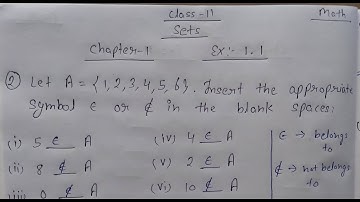 Class-11
Math
Sets
Chapter-1 Ex:- 1.1
② Let A = {1,2,3,4,5,6}. Insert the appropriate
symbol ∈ or ∉ in the blank spaces:
(i) 5 ∈ A (iv) 4 ∈ A ∈ → belongs to
(ii) 8 ∉ A (v) 2 ∈ A ∉ → not belongs to
(iii) 0 ∉ A (vi) 10 ∉ A